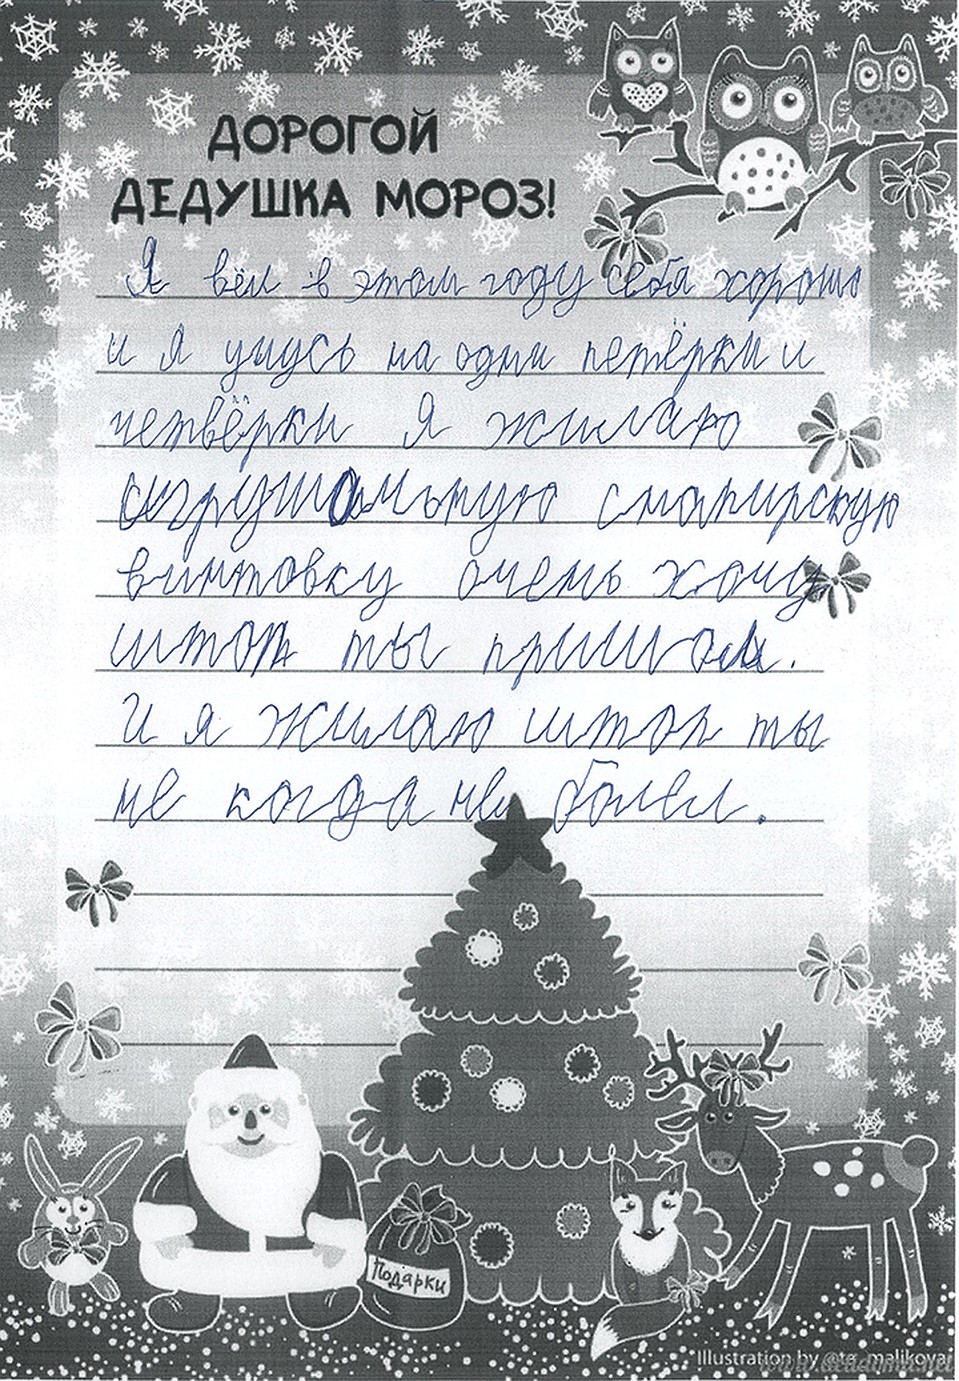 ДОРОГОЙ
ДЕДУШКА МОРОЗ!
Я вёл в этом году себя хорошо
и я учусь на одни петёрки и
четвёрки Я жилаю
снайпирскую
винтовку очень хочу
штоп ты пришол.
И я жилаю штоп ты
не когда не болел.
Подарки
Illustration by @ta_malikova